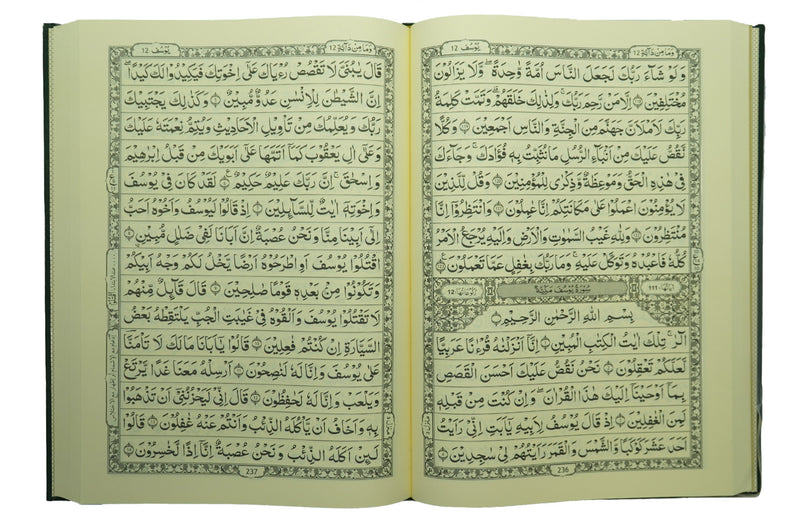 وَمَا مِنْ دَآبَّةٍ 12
يُوْسُف 12
وَلَوْ شَآءَ رَبُّكَ لَجَعَلَ النَّاسَ اُمَّةً وَّاحِدَةً وَّلَا يَزَالُوْنَ
مُخْتَلِفِيْنَ ۝ اِلَّا مَنْ رَّحِمَ رَبُّكَ ۚ وَلِذٰلِكَ خَلَقَهُمْ ۗ وَتَمَّتْ كَلِمَةُ
رَبِّكَ لَاَمْلَاَنَّ جَهَنَّمَ مِنَ الْجِنَّةِ وَالنَّاسِ اَجْمَعِيْنَ ۝ وَكُلًّا
نَّقُصُّ عَلَيْكَ مِنْ اَنْۢبَآءِ الرُّسُلِ مَا نُثَبِّتُ بِهٖ فُؤَادَكَ ۚ وَجَآءَكَ
فِيْ هٰذِهِ الْحَقُّ وَمَوْعِظَةٌ وَّذِكْرٰى لِلْمُؤْمِنِيْنَ ۝ وَقُلْ لِّلَّذِيْنَ
لَا يُؤْمِنُوْنَ اعْمَلُوْا عَلٰى مَكَانَتِكُمْ ۗ اِنَّا عٰمِلُوْنَ ۝ وَانْتَظِرُوْا ۚ اِنَّا
مُنْتَظِرُوْنَ ۝ وَلِلّٰهِ غَيْبُ السَّمٰوٰتِ وَالْاَرْضِ وَاِلَيْهِ يُرْجَعُ الْاَمْرُ
كُلُّهٗ فَاعْبُدْهُ وَتَوَكَّلْ عَلَيْهِ ۗ وَمَا رَبُّكَ بِغَافِلٍ عَمَّا تَعْمَلُوْنَ ۝
اٰيَاتُهَا 111
سُوْرَةُ يُوْسُفَ مَكِّيَّةٌ
12
بِسْمِ اللّٰهِ الرَّحْمٰنِ الرَّحِيْمِ ۝
الٓرٰ ۚ تِلْكَ اٰيٰتُ الْكِتٰبِ الْمُبِيْنِ ۝ اِنَّآ اَنْزَلْنٰهُ قُرْءٰنًا عَرَبِيًّا
لَّعَلَّكُمْ تَعْقِلُوْنَ ۝ نَحْنُ نَقُصُّ عَلَيْكَ اَحْسَنَ الْقَصَصِ
بِمَآ اَوْحَيْنَآ اِلَيْكَ هٰذَا الْقُرْاٰنَ ۖ وَاِنْ كُنْتَ مِنْ قَبْلِهٖ
لَمِنَ الْغٰفِلِيْنَ ۝ اِذْ قَالَ يُوْسُفُ لِاَبِيْهِ يٰٓاَبَتِ اِنِّيْ رَاَيْتُ
اَحَدَ عَشَرَ كَوْكَبًا وَّالشَّمْسَ وَالْقَمَرَ رَاَيْتُهُمْ لِيْ سٰجِدِيْنَ ۝
236
يُوْسُف 12
وَمَا مِنْ دَآبَّةٍ 12
قَالَ يٰبُنَيَّ لَا تَقْصُصْ رُءْيَاكَ عَلٰٓى اِخْوَتِكَ فَيَكِيْدُوْا لَكَ كَيْدًا ۗ
اِنَّ الشَّيْطٰنَ لِلْاِنْسٰنِ عَدُوٌّ مُّبِيْنٌ ۝ وَكَذٰلِكَ يَجْتَبِيْكَ
رَبُّكَ وَيُعَلِّمُكَ مِنْ تَاْوِيْلِ الْاَحَادِيْثِ وَيُتِمُّ نِعْمَتَهٗ عَلَيْكَ
وَعَلٰٓى اٰلِ يَعْقُوْبَ كَمَآ اَتَمَّهَا عَلٰٓى اَبَوَيْكَ مِنْ قَبْلُ اِبْرٰهِيْمَ
وَاِسْحٰقَ ۗ اِنَّ رَبَّكَ عَلِيْمٌ حَكِيْمٌ ۝ لَقَدْ كَانَ فِيْ يُوْسُفَ
وَاِخْوَتِهٖٓ اٰيٰتٌ لِّلسَّآئِلِيْنَ ۝ اِذْ قَالُوْا لَيُوْسُفُ وَاَخُوْهُ اَحَبُّ
اِلٰٓى اَبِيْنَا مِنَّا وَنَحْنُ عُصْبَةٌ ۗ اِنَّ اَبَانَا لَفِيْ ضَلٰلٍ مُّبِيْنٍ ۝
اقْتُلُوْا يُوْسُفَ اَوِ اطْرَحُوْهُ اَرْضًا يَّخْلُ لَكُمْ وَجْهُ اَبِيْكُمْ
وَتَكُوْنُوْا مِنْۢ بَعْدِهٖ قَوْمًا صٰلِحِيْنَ ۝ قَالَ قَآئِلٌ مِّنْهُمْ
لَا تَقْتُلُوْا يُوْسُفَ وَاَلْقُوْهُ فِيْ غَيٰبَتِ الْجُبِّ يَلْتَقِطْهُ بَعْضُ
السَّيَّارَةِ اِنْ كُنْتُمْ فٰعِلِيْنَ ۝ قَالُوْا يٰٓاَبَانَا مَالَكَ لَا تَاْمَنَّا
عَلٰى يُوْسُفَ وَاِنَّا لَهٗ لَنٰصِحُوْنَ ۝ اَرْسِلْهُ مَعَنَا غَدًا يَّرْتَعْ
وَيَلْعَبْ وَاِنَّا لَهٗ لَحٰفِظُوْنَ ۝ قَالَ اِنِّيْ لَيَحْزُنُنِيْٓ اَنْ تَذْهَبُوْا
بِهٖ وَاَخَافُ اَنْ يَّاْكُلَهُ الذِّئْبُ وَاَنْتُمْ عَنْهُ غٰفِلُوْنَ ۝ قَالُوْا
لَئِنْ اَكَلَهُ الذِّئْبُ وَنَحْنُ عُصْبَةٌ اِنَّآ اِذًا لَّخٰسِرُوْنَ ۝
237